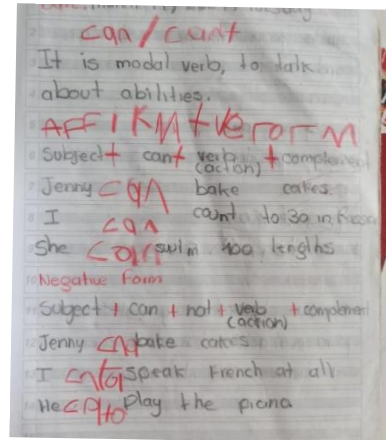 can / can't
It is modal verb, to talk
about abilities.
AFFIRMTIVE FORM
Subject + can + verb + complement
(action)
Jenny can bake cakes.
I can count to 30 in
She can swim 400 lengths
Negative form
Subject + can + not + verb + complement
(action)
Jenny bake cakes
I speak French at all
He play the piano